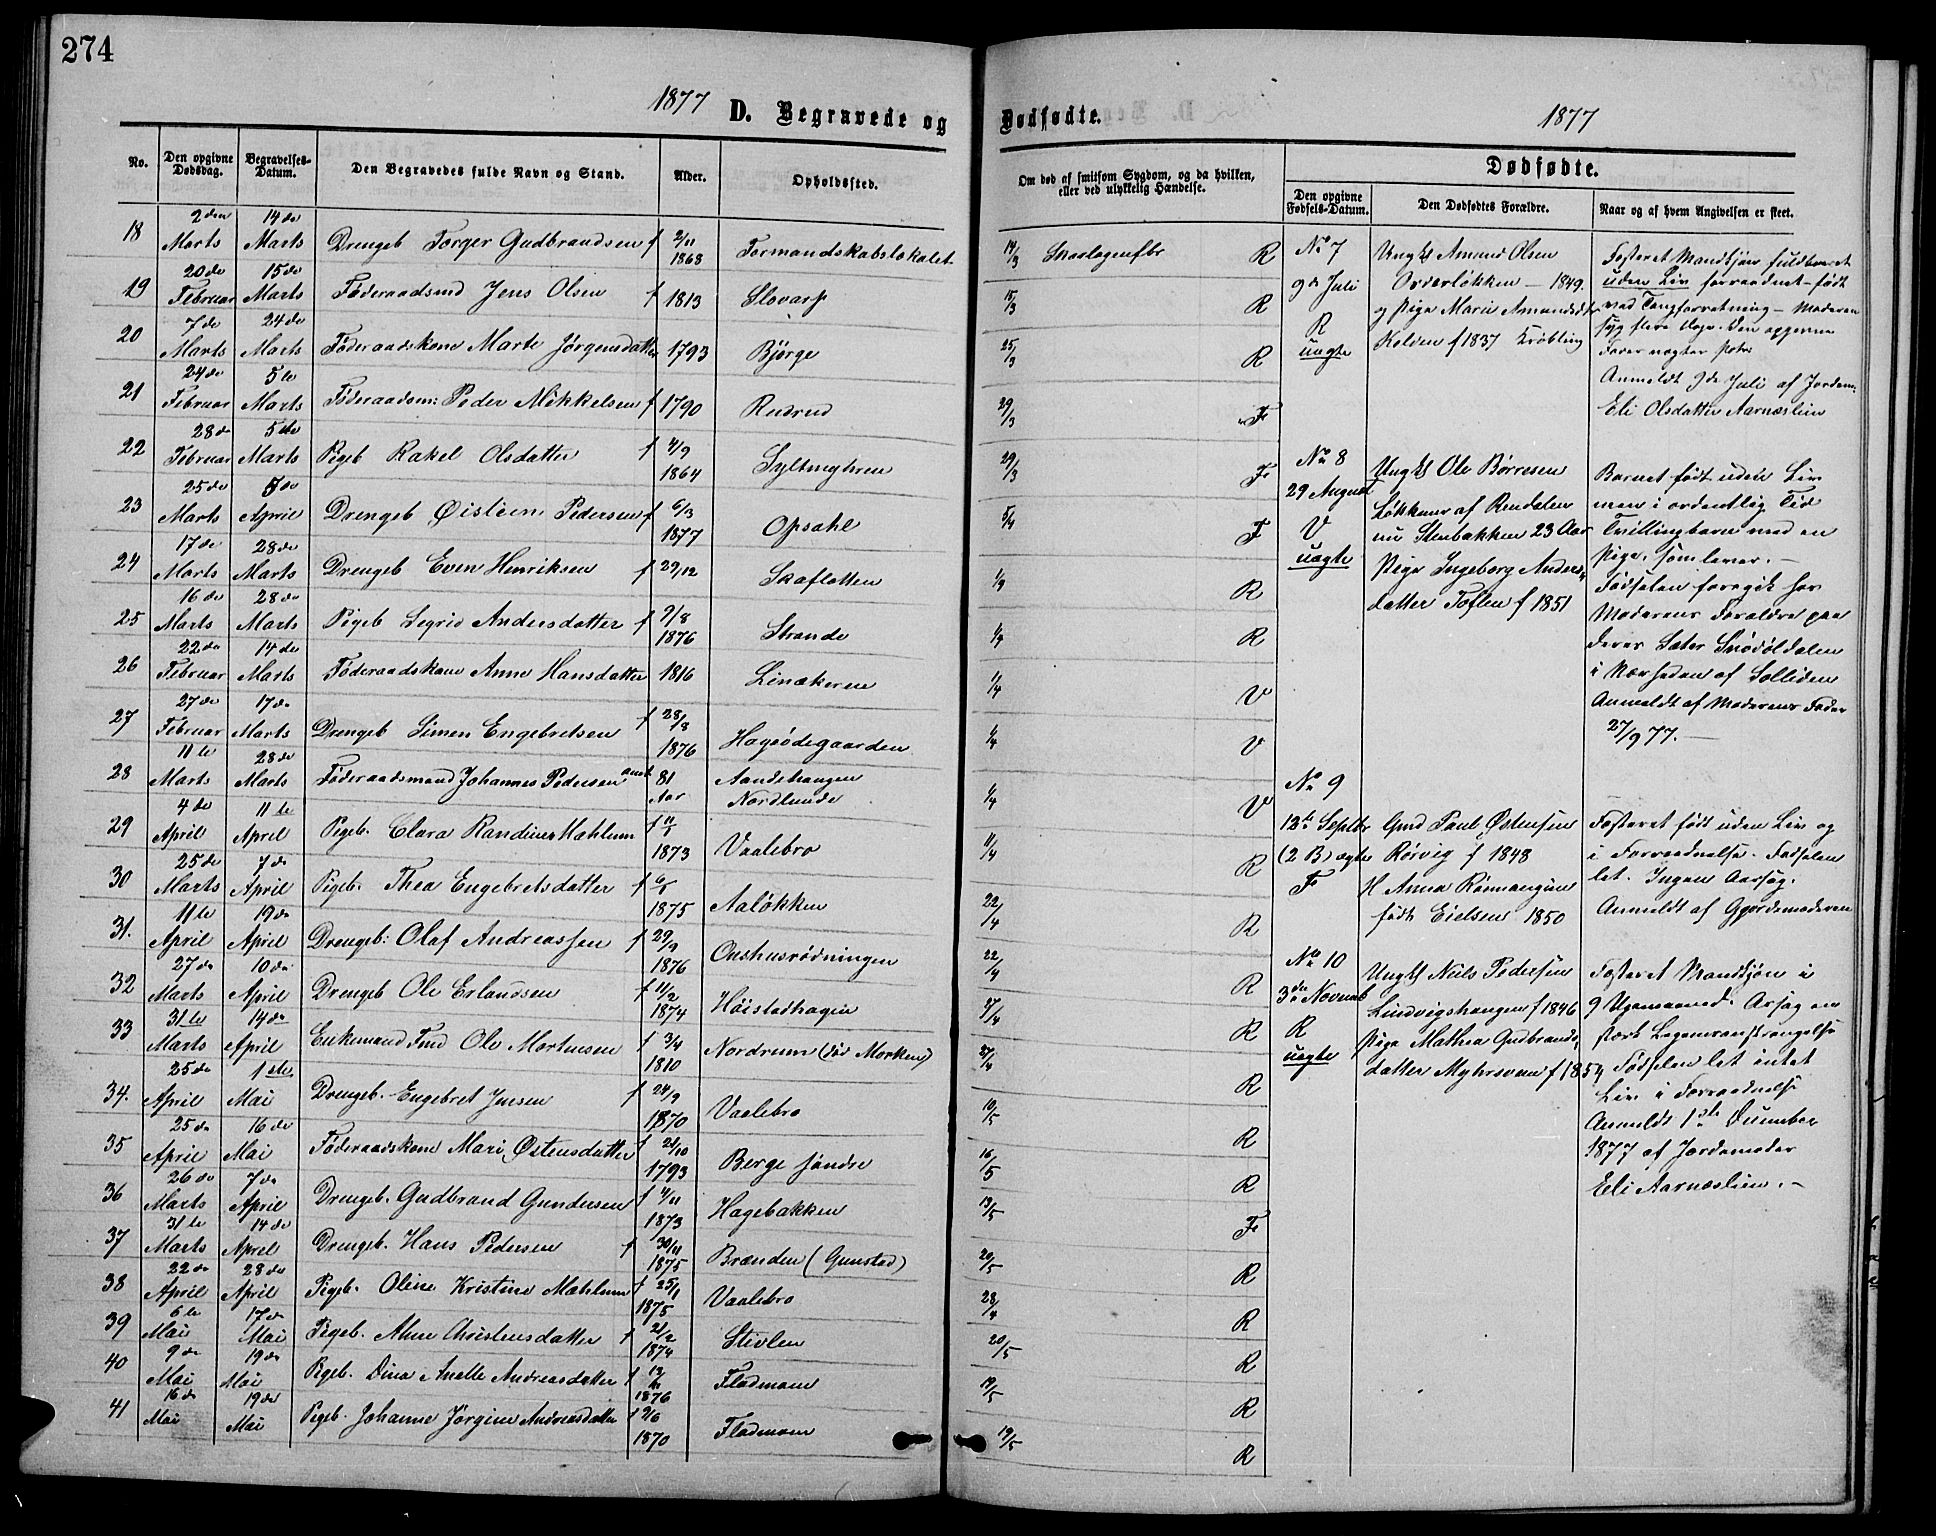 274
1877 D. Begravede og
No. Den opgivne Dødsdag. Begravelses-Datum. Den Begravedes fulde Navn og Stand. Alder. Opholdssted.
18 2den Marts 14de Marts Drengeb Torger Gudbrandsen f 2/11 1868 Formandskabslokalet
19 20de Februar 15de Marts Føderaadsmd Jens Olsen f 1813 Slovarp
20 7de Marts 24de Marts Føderaadskone Marte Jørgensdatter 1793 Bjørge
21 24de Februar 5te Marts Føderaadsm: Peder Mikkelsen f 1790 Rudrud
22 28de Februar 5te Marts Pigeb Rakel Olsdatter f 4/9 1864 Syltmyhren
23 25de Marts 5de April Drengeb Øistein Pedersen f 6/3 1877 Opsahl
24 17de Marts 28de Marts Drengeb Even Henriksen f 29/12 Skaflotten
25 16de Marts 28de Marts Pigeb Sigrid Andersdatter f 9/8 1876 Strande
26 22de Februar 14de Marts Føderaadskone Anne Hansdatter 1816 Linækeren
27 27de Februar 17de Marts Drengeb Simen Engebretsen f 28/8 1876 Hagsødegaarden
28 11te Marts 28de Marts Føderaadsmand Johannes Pedersen 81 Aar Aandehaugen Nordlunde
29 4de April 11te April Pigeb. Clara Randine Mæhlum f 1873 Vaalebro
30 25de Marts 7de April Pigeb. Thea Engebretsdatter f 1875 Aaløkken
31. 11te April 19de April Drengeb: Olaf Andreassen f 29/9 1876 Onshusrødningen
32 27de Marts 10de April Drengeb Ole Erlandsen f 11/2 1874 Høistadhagen
33 31te Marts 14de April Enkemand Ole Martinsen f 3/4 1810 Nordrum (død Morken)
34. 25de April 1ste Mai Drengeb. Engebret Jensen f 24/9 1870 Vaalebro
35 25de April 16de Mai Føderaadskone Mari Østensdatter f 21/10 1793 Berge søndre
36 26de Marts 7de April Drengeb. Gudbrand Gundersen f 4/11 1873 Hagebakken
37 31te Marts 14de April Drengeb. Hans Pedersen f 30/11 1875 Brænden (Gunstad)
38 22de April 28de April Pigeb. Oline Kristine Mæhlum f 25/1 1875 Vaalebro
39 6te Mai 17de Mai Pigeb. Christensdatter f 21/2 1874 Stivlen
40 9de Mai 19de Mai Pigeb. Dina Anette Andreasdatter f 1876 Flodmoen
41 16de Mai 19de Mai Pigeb. Johanne Jørgine Andreasdatter f 2/6 1870 Flodmoen
Dødfødte. 1877
Om død af smitsom Sygdom, og da hvilken, eller ved ulykkelig Hændelse.
Dødfødte.
Den opgivne Fødsels-Datum. Den Dødfødtes Forældre. Naar og af hvem Angivelsen er skeet.
14/3 Skarlagensfbr R
15/3 R
25/3 R
29/3 F
29/3 F
5/4 F
R
R
V
V
V
11/4 R
22/4 R
22/4 R
27/4 R
27/4 R
10/5 R
16/5 R
13/5 F
20/5 R
28/4 R
20/5 R
19/5 R
19/5 R
No 7
9de Juli
R
uægte
Ungk Amund Olsen
Orderløkken - 1849.
og Pige Marie Amundsdtr
Kolden f 1837 Krøbling
Fosteret Mandkjøn fuldbaaret
uden Liv forraadnet - født
ved Tangforretning - Moderen
syg flere Dage. Den opgivne
Fader nægter
Anmeldt 9de Juli af Jordem.
Eli Olsdatter Aarnæslien
No 8
29 August
V
uægte
Ungk Ole Børresen
Løkken af Rendalen
nu Stenbakken 23 Aar
Pige Ingeborg Anders
datter Toflen f 1851
Barnet født uden Liv
men i ordentlig Tid
Tvillingbarn med en
Pige, som lever. -
Fødselen foregik hos
Moderens Forældre paa
deres Sæter Snødøldalen
i Nærheden af Solliden
Anmeldt af Moderens Fader
27/9 77. -
No 9
12te Septbr
(2 B) ægte
F
Gmd Paul Østensen
Rørvig f 1848
H Anna
født Eielsen 1850
Fosteret født uden Liv og
i Forraadnelse. Fødselen
let. Ingen Aarsag.
Anmeldt af Gjordemoderen
No 10
3de Novemb
R
uægte
Ungk Niels Pedersen
Lindvigshaugen f 1846
Pige Mathea Gudbrands
datter Myhrsveen f 1854
Fosteret Mandkjøn i
9 Ugemaaned. Aarsag en
stærk Legemsanstrengelse
Fødselen let intet
Liv i Forraadnelse
Anmeldt 1ste December
1877 af Jordemoder
Eli Aarnæslien. -